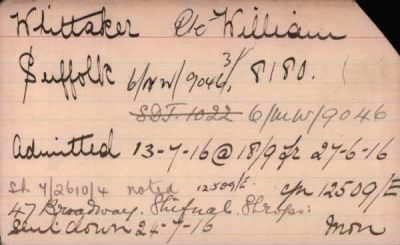 Whittaker Pte William
Suffolk 6/MW/9046, 3/8180.
SDT. 1022 6/MW/9046
Admitted 13-7-16 @ 18/9 Fr 27-6-16
Sh 4/2610/4 noted 12509/E c/n 12509/E
47 Broadway. Shifnal. Shrops:
Sent down 24-7-16 Mon